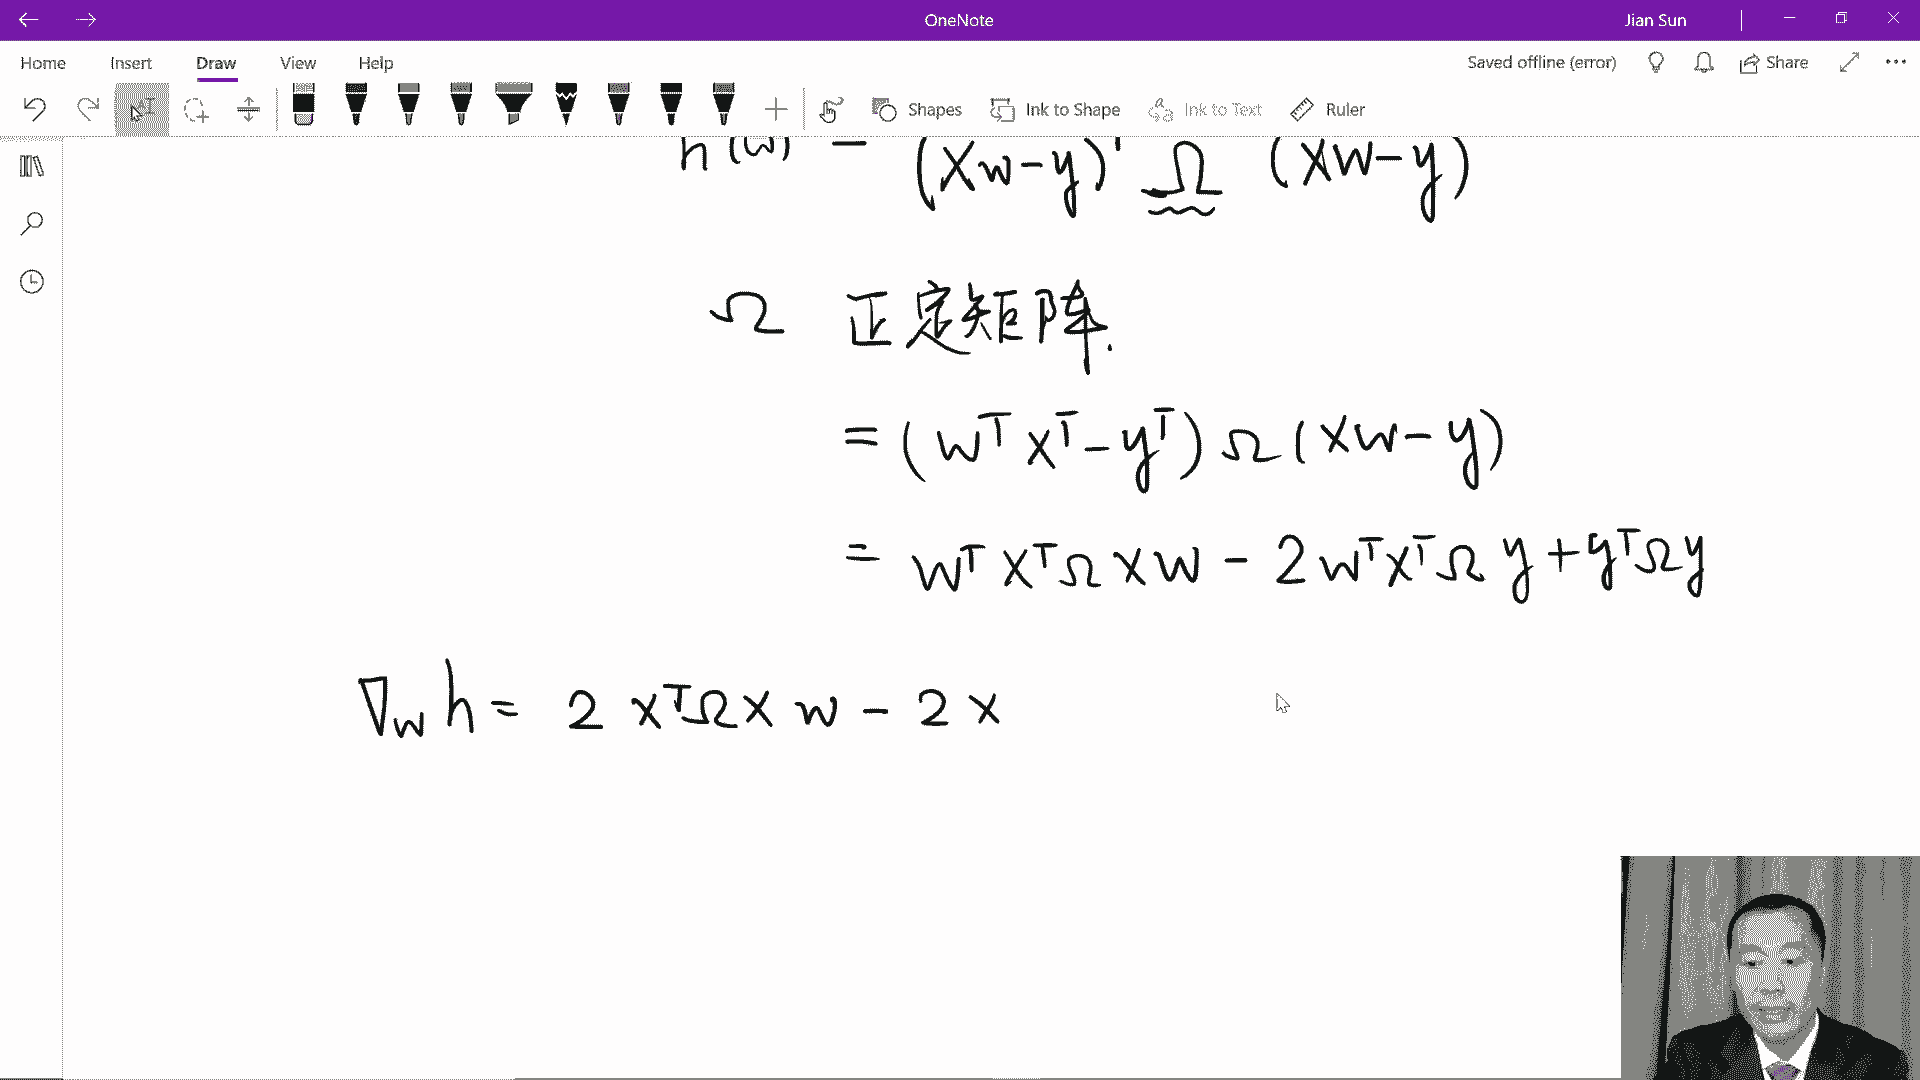 OneNote
Jian Sun
Home Insert Draw View Help
Saved offline (error)
Share
Shapes
Ink to Shape
Ink to Text
Ruler
h(w) = (Xw-y)ᵀ Ω (Xw-y)
Ω 正定矩阵.
= (wᵀXᵀ-yᵀ)Ω(Xw-y)
= wᵀXᵀΩXw - 2wᵀXᵀΩy + yᵀΩy
∇w h = 2XᵀΩXw - 2X